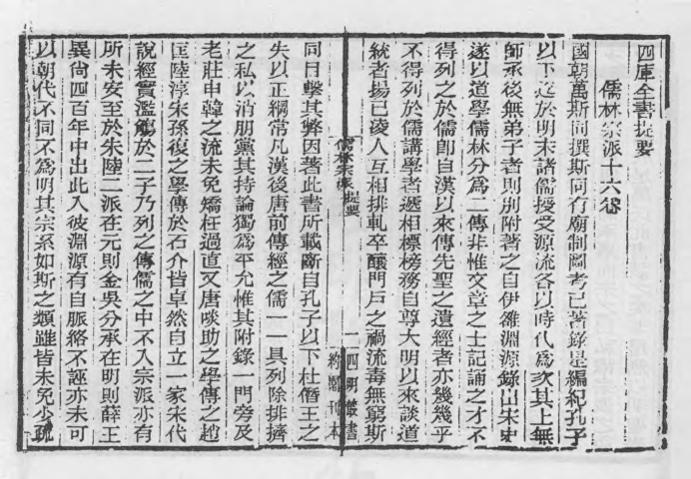 四庫全書提要
儒林宗派十六卷
國朝萬斯同撰斯同有廟制圖考已著錄是編紀孔子
以下迄於明末諸儒授受源流各以時代為次其上無
師承後無弟子者則別附著之自伊雒淵源錄出宋史
遂以道學儒林分為二傳非惟文章之士記誦之才不
得列之於儒卽自漢以來傳先聖之遺經者亦幾幾乎
不得列於儒講學者遞相標榜務自尊大明以來談道
統者揚己凌人互相排軋卒釀門戶之禍流毒無窮斯
儒林宗派 提要
一
四明叢書
約園刊本
同目擊其弊因著此書所載斷自孔子以下杜僭王之
失以正綱常凡漢後唐前傳經之儒一一具列除排擠
之私以消朋黨其持論獨為平允惟其附錄一門旁及
老莊申韓之流未免矯枉過直又唐啖助之學傳之趙
匡陸淳宋孫復之學傳於石介皆卓然自立一家宋代
說經實濫觴於二子乃列之傳儒之中不入宗派亦有
所未安至於朱陸二派在元則金吳分承在明則薛王
異尙四百年中出此入彼淵源有自脈絡不誣亦未可
以朝代不同不為明其宗系如斯之類雖皆未免少疏